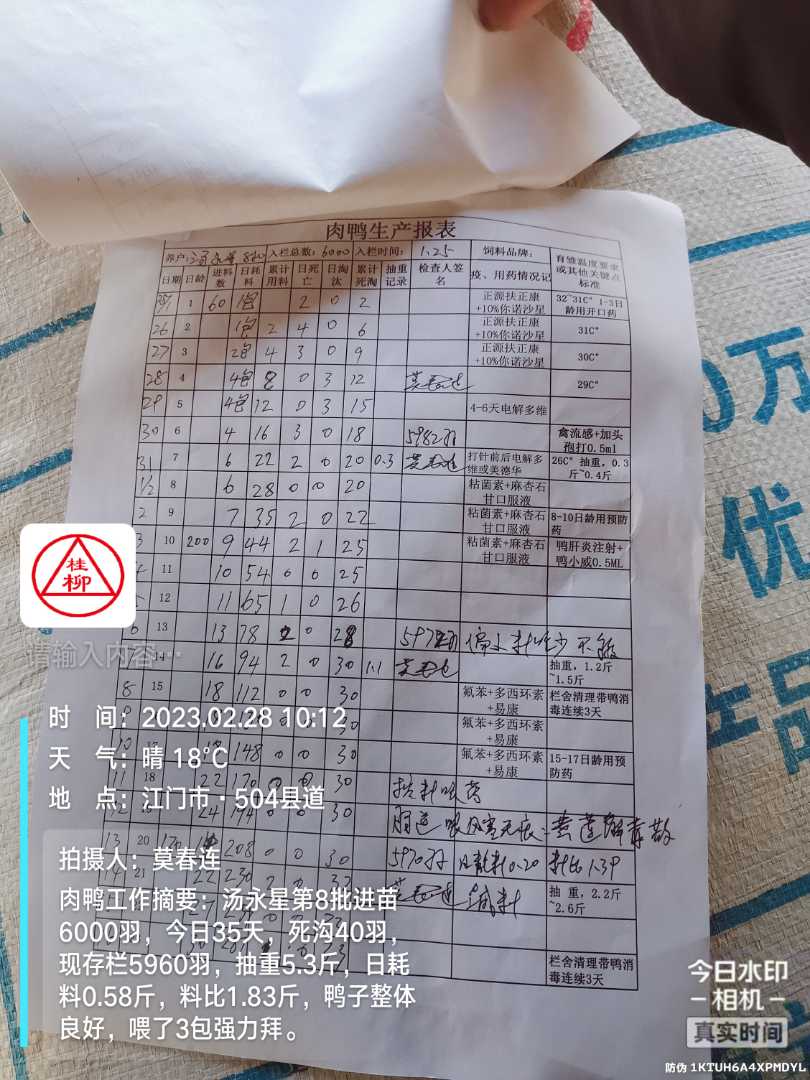 肉鸭生产报表
养户: 汤永星 8批 入栏总数: 6000 入栏时间: 1.25 饲料品牌: 育雏温度要求或其他关键点标准
日期 日龄 进料数 日耗料 累计用料 日死亡 日淘汰 累计死淘 抽重记录 检查人签名 疫、用药情况记
1 60 1包 2 0 2 正源扶正康+10%你诺沙星 32~31C° 1-3日龄用开口药
26 2 1包 2 4 0 6 正源扶正康+10%你诺沙星 31C°
27 3 2包 4 3 0 9 正源扶正康+10%你诺沙星 30C°
28 4 4包 8 0 3 12 莫春连 29C°
29 5 4包 12 0 3 15 4-6天电解多维
30 6 4 16 3 0 18 5982羽 禽流感+加头孢打0.5ml
31 7 6 22 2 0 20 0.3 莫春连 打针前后电解多维或美德华 26C° 抽重, 0.3斤~0.4斤
1/2 8 6 28 0 0 20 粘菌素+麻杏石甘口服液
2 9 7 35 2 0 22 粘菌素+麻杏石甘口服液 8-10日龄用预防药
3 10 200 9 44 2 1 25 粘菌素+麻杏石甘口服液 鸭肝炎注射+鸭小威0.5ML
11 10 54 0 0 25
12 11 65 1 0 26
6 13 13 78 2 0 28
14 16 94 2 0 30 1.1 莫春连 抽重, 1.2斤~1.5斤
8 15 18 112 0 0 30 氟苯+多西环素+易康 栏舍清理带鸭消毒连续3天
30 氟苯+多西环素+易康
148 0 0 30 氟苯+多西环素+易康 15-17日龄用预防药
11 18 22 170 0 0 30
30
13 20 208 0 0 30 5970羽 日耗料0.20 料比1.39
21 22 230 莫春连 减料 抽重, 2.2斤~2.6斤
栏舍清理带鸭消毒连续3天
桂柳
请输入内容…
时 间: 2023.02.28 10:12
天 气: 晴 18℃
地 点: 江门市·504县道
拍摄人: 莫春连
肉鸭工作摘要: 汤永星第8批进苗
6000羽，今日35天，死沟40羽，
现存栏5960羽，抽重5.3斤，日耗
料0.58斤，料比1.83斤，鸭子整体
良好，喂了3包强力拜。
万
优
产品
今日水印
相机
真实时间
防伪 1KTUH6A4XPMDYL